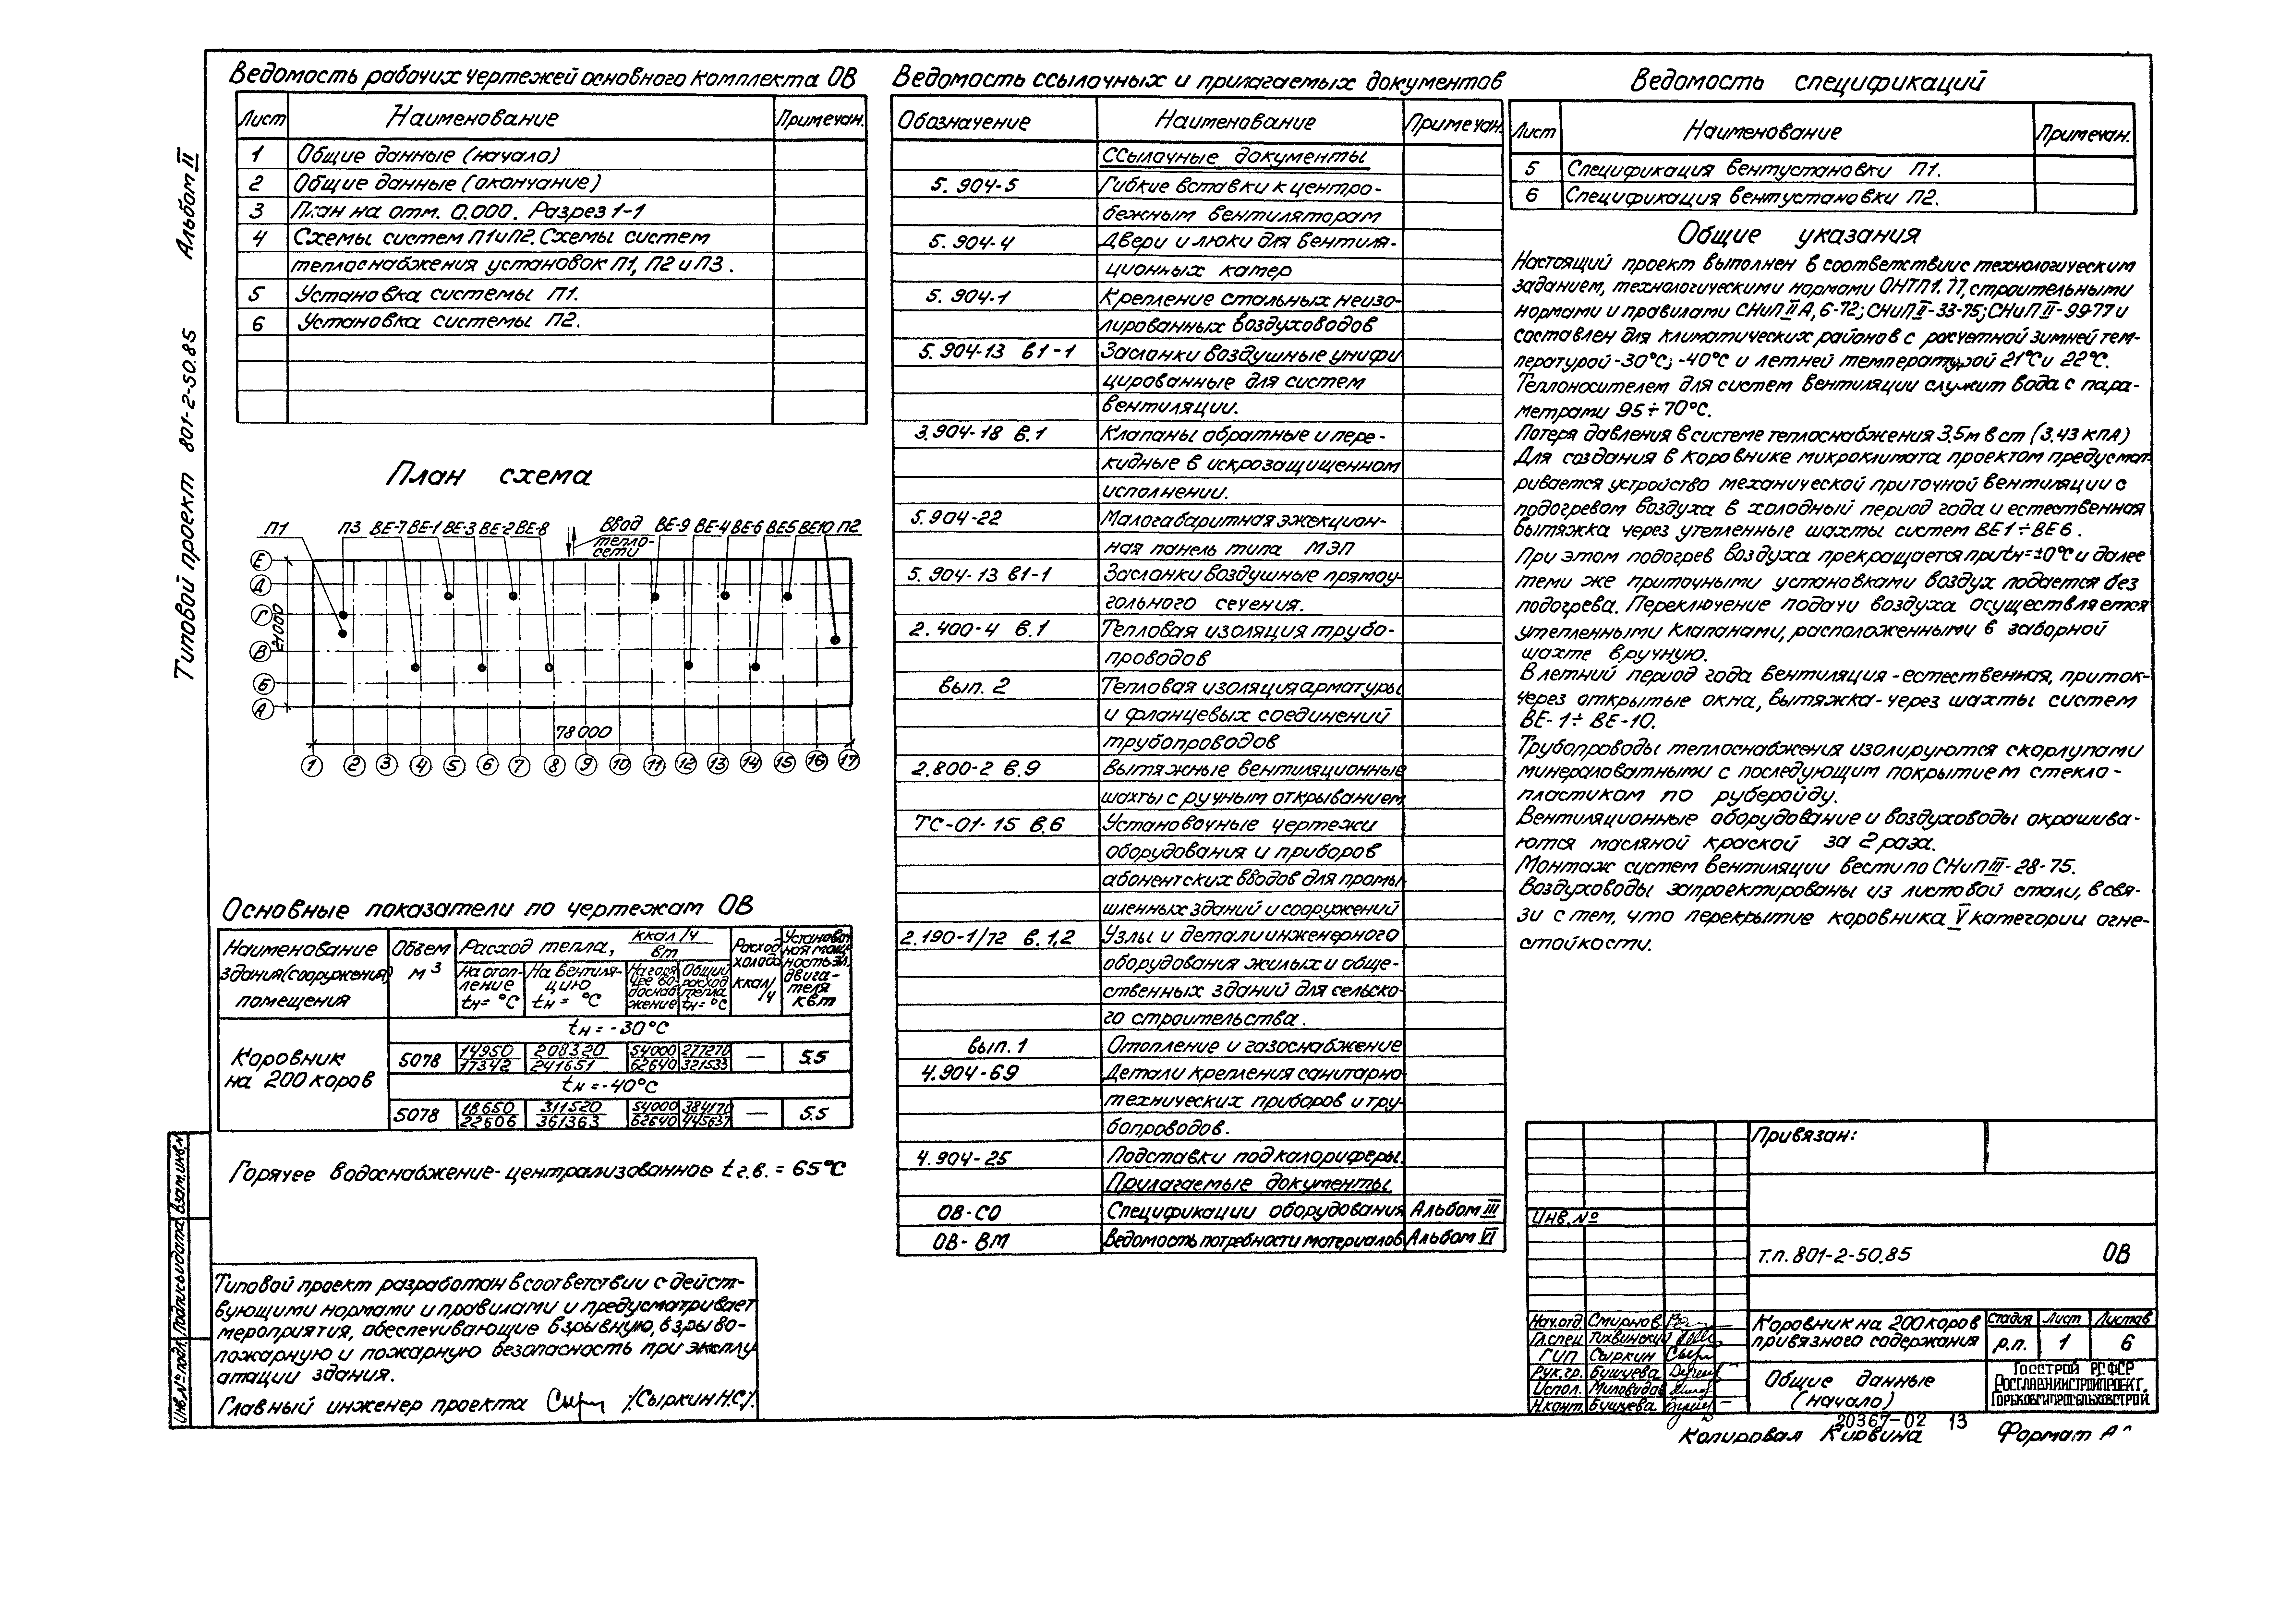 Альбом II
Типовой проект 801-2-50.85
Ведомость рабочих чертежей основного комплекта ОВ
Лист Наименование Примечан.
1 Общие данные (начало)
2 Общие данные (окончание)
3 План на отм. 0.000. Разрез 1-1
4 Схемы систем П1 и П2. Схемы систем
теплоснабжения установок П1, П2 и П3.
5 Установка системы П1.
6 Установка системы П2.
План схема
П1 П3 ВЕ-7 ВЕ-1 ВЕ-3 ВЕ-2 ВЕ-8 Ввод тепло-сети ВЕ-9 ВЕ-4 ВЕ-6 ВЕ5 ВЕ10 П2
Е
Д
Г
В
Б
А
21000
78000
1 2 3 4 5 6 7 8 9 10 11 12 13 14 15 16 17
Основные показатели по чертежам ОВ
Наименование здания (сооружения) помещения
Объем м³
Расход тепла, ккал/ч вт
На отоп-ление tн= °С
На вентиля-цию tн= °С
На горя-чее во-доснаб-жение
Общий расход тепла tн= °С
Расход холода ккал/ч
Установоч-ная мощ-ность эл. двига-теля квт
Коровник на 200 коров
tн = -30°С
5078 14950/17342 208320/241651 54000/62640 277270/321533 — 5.5
tн = -40°С
5078 18650/22606 311520/361363 54000/62640 384170/445637 — 5.5
Горячее водоснабжение-централизованное t г.в. = 65°С
Типовой проект разработан в соответствии с дейст-
вующими нормами и правилами и предусматривает
мероприятия, обеспечивающие взрывную, взрыво-
пожарную и пожарную безопасность при эксплу
атации здания.
Главный инженер проекта /Сыркин Н.С./
Инв.№ подл. Подпись и дата Взам.инв.№
Ведомость ссылочных и прилагаемых документов
Обозначение Наименование Примечан.
Ссылочные документы
5.904-5 Гибкие вставки к центро-
бежным вентиляторам
5.904-4 Двери и люки для вентиля-
ционных камер
5.904-1 Крепление стальных неизо-
лированных воздуховодов
5.904-13 в1-1 Заслонки воздушные унифи
цированные для систем
вентиляции.
3.904-18 в.1 Клапаны обратные и пере-
кидные в искрозащищенном
исполнении.
5.904-22 Малогабаритная эжекцион-
ная панель типа МЭП
5.904-13 в1-1 Заслонки воздушные прямоу-
гольного сечения.
2.400-4 в.1 Тепловая изоляция трубо-
проводов
вып. 2 Тепловая изоляция арматуры
и фланцевых соединений
трубопроводов
2.800-2 в.9 Вытяжные вентиляционные
шахты с ручным открыванием
ТС-01-15 в.6 Установочные чертежи
оборудования и приборов
абонентских вводов для промы-
шленных зданий и сооружений
2.190-1/72 в.1,2 Узлы и детали инженерного
оборудования жилых и обще-
ственных зданий для сельско-
го строительства.
вып.1 Отопление и газоснабжение
4.904-69 Детали крепления санитарно-
технических приборов и тру-
бопроводов.
4.904-25 Подставки под калориферы.
Прилагаемые документы
ОВ-СО Спецификации оборудования Альбом III
ОВ-ВМ Ведомость потребности материалов Альбом VI
Ведомость спецификаций
Лист Наименование Примечан.
5 Спецификация вентустановки П1.
6 Спецификация вентустановки П2.
Общие указания
Настоящий проект выполнен в соответствии с технологическим
заданием, технологическими нормами ОНТП1.77, строительными
нормами и правилами СНиП II А, 6-72; СНиП II-33-75; СНиП II-99-77 и
составлен для климатических районов с расчетной зимней тем-
пературой -30°С; -40°С и летней температурой 21°С и 22°С.
Теплоносителем для систем вентиляции служит вода с пара-
метрами 95÷70°С.
Потеря давления в системе теплоснабжения 3.5м в ст (3.43 кПА)
Для создания в коровнике микроклимата проектом предусмат-
ривается устройство механической приточной вентиляции с
подогревом воздуха в холодный период года и естественная
вытяжка через утепленные шахты систем ВЕ1÷ВЕ6.
При этом подогрев воздуха прекращается при tн=±0°С и далее
теми же приточными установками воздух подается без
подогрева. Переключение подачи воздуха осуществляется
утепленными клапанами, расположенными в заборной
шахте вручную.
В летний период года вентиляция-естественная, приток-
через открытые окна, вытяжка-через шахты систем
ВЕ-1÷ВЕ-10.
Трубопроводы теплоснабжения изолируются скорлупами
минераловатными с последующим покрытием стекло-
пластиком по рубероиду.
Вентиляционные оборудование и воздуховоды окрашива-
ются масляной краской за 2 раза.
Монтаж систем вентиляции вести по СНиП III-28-75.
Воздуховоды запроектированы из листовой стали, в свя-
зи с тем, что перекрытие коровника V категории огне-
стойкости.
Привязан:
Инв.№
т.п. 801-2-50.85 ОВ
Нач.отд. Смирнов
Гл.спец. Тихвинский
ГИП Сыркин
Рук.гр. Бушуева
Испол. Миловидов
Н.конт. Бушуева
Коровник на 200 коров
привязного содержания
Стадия Лист Листов
р.п. 1 6
Общие данные
(начало)
Госстрой РСФСР
Росглавниистройпроект
Горьковгипросельхозстрой
20367-02 13
Копировал Формат А